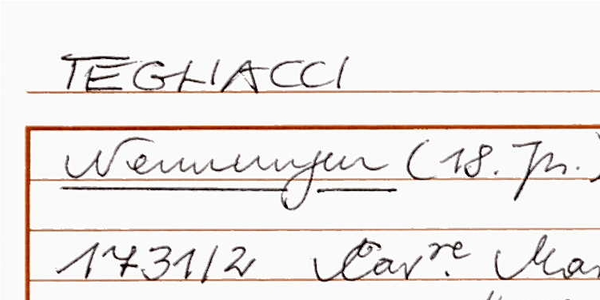 TEGLIACCI
Nennungen (18. Jh.)
1731/2 Cav.re Mar